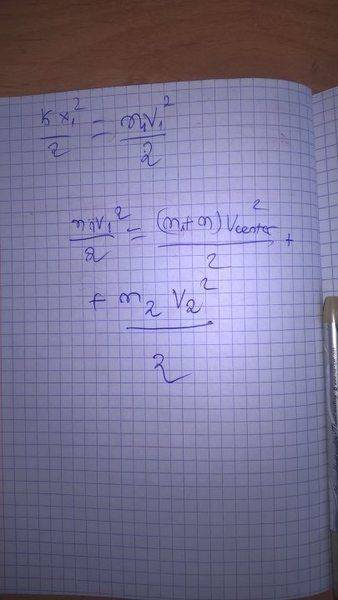 kx₁²/2 = m₁v₁²/2
m₁v₁²/2 = (m₁+m)Vcenter²/2 +
+ m₂ V₂²/2